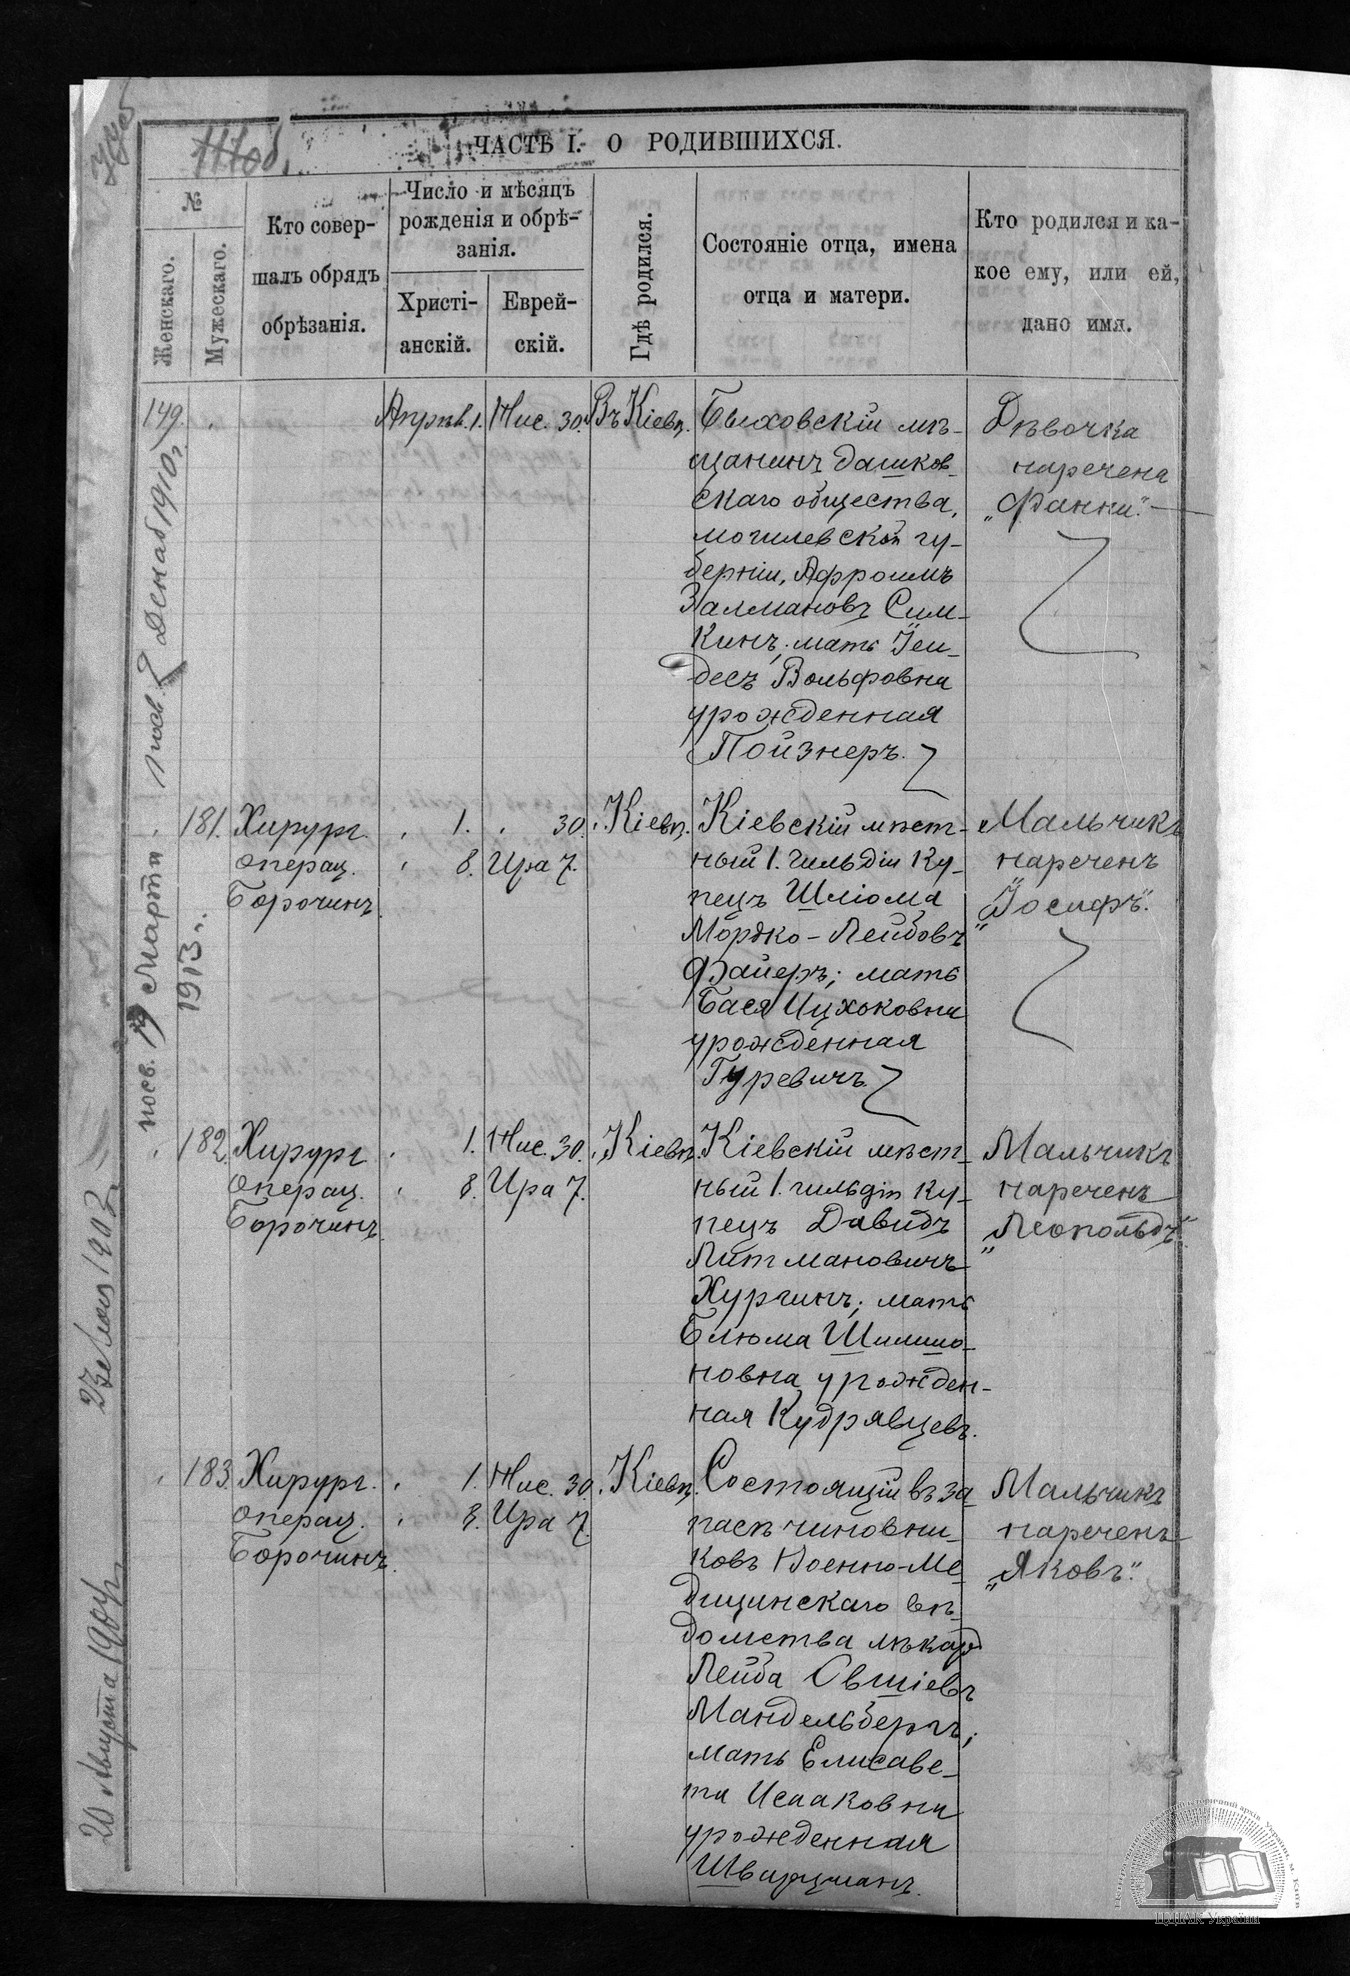 ЧАСТЬ I. О РОДИВШИХСЯ.
№
Женскаго.
Мужескаго.
Кто совер-
шалъ обрядъ
обрѣзанія.
Число и мѣсяцъ
рожденія и обрѣ-
занія.
Христі-
анскій.
Еврей-
скій.
Гдѣ родился.
Состояніе отца, имена
отца и матери.
Кто родился и ка-
кое ему, или ей,
дано имя.
149.
Апрѣл. 1.
Нис. 30.
Въ Кіевѣ.
Быховскій мѣ-
щанинъ Дашков-
скаго общества,
могилевской гу-
берніи, Афроимъ
Залмановъ Сим-
кинъ; мать Іен-
десъ Вольфовна
урожденная
Пойзнеръ.
Дѣвочка
наречена
„Фанни".
181.
Хирург
операц.
Борочинъ
1.
8.
30.
Ира 7.
Кіевѣ.
Кіевскій мѣст-
ный 1. гильдіи ку-
пецъ Шліома
Мордко-Лейбовъ
Файеръ; мать
Бася Ицхоковна
урожденная
Гуревичъ.
Мальчикъ
нареченъ
„Іосифъ".
182.
Хирург
операц.
Борочинъ
1.
8.
Нис. 30.
Ира 7.
Кіевѣ.
Кіевскій мѣст-
ный 1. гильдіи ку-
пецъ Давидъ
Литмановичъ
Хургинъ; мать
Блюма Шилимо-
новна урожден-
ная Кудрявцевъ.
Мальчикъ
нареченъ
„Леопольдъ".
183.
Хирург.
операц.
Борочинъ.
1.
8.
Нис. 30.
Ира 7.
Кіевѣ.
Состоящій въ за-
пасѣ чиновни-
ковъ Военно-Ме-
дицинскаго вѣ-
домства лѣкарь
Лейба Овшіевъ
Мандельбергъ;
мать Елисаве-
та Исааковна
урожденная
Шварцманъ.
Мальчикъ
нареченъ
„Яковъ".
посв. 19 Марта
1913 г.
Декаб 1910 г.
20 Августа 1904 г.
ЦДІАК України